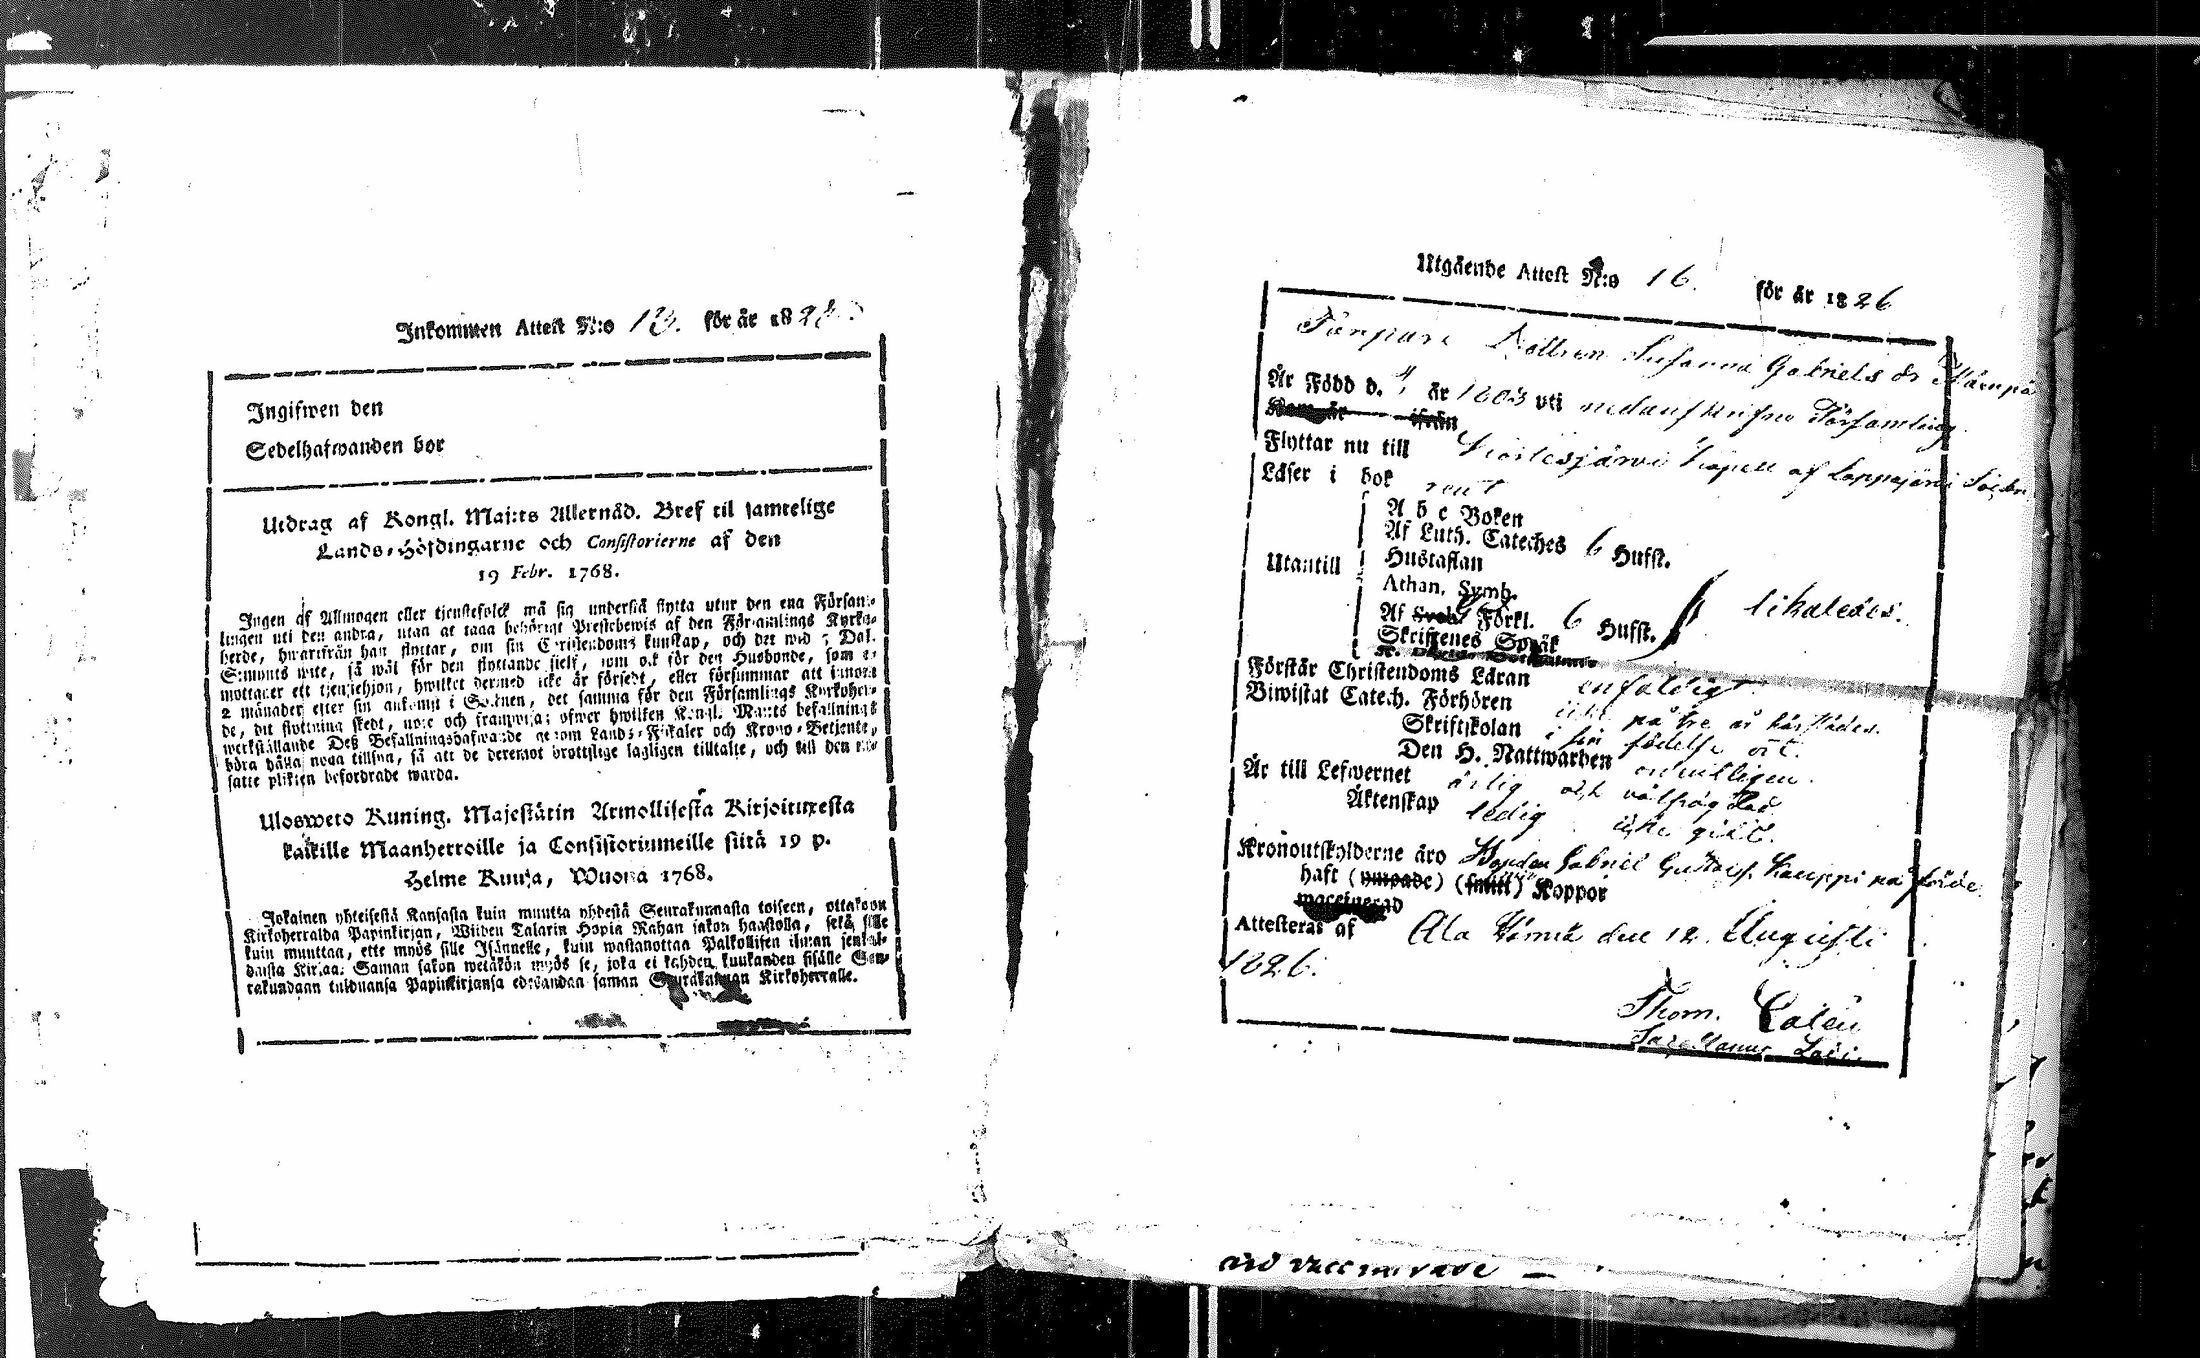 Inkommen Attest N:o 13. för år 182
Ingifwen den
Sedelhafwanden bor
Utdrag af Kongl. Maj:ts Allernåd. Bref til samtelige
Lands-Höfdingarne och Consistorierne af den
19 Febr. 1768.
Ingen af Allmogen eller tjenstefolck må sig understå flytta utur den ena Försam-
lingen uti den andra, utan at taga behörigt Prestebewis af den Församlings Kyrko-
herde, hwarifrån han flyttar, om sin Christendoms kunskap, och det wid 5 Dal.
S:mynts wite, så wäl för den flyttande sielf, som ock för den Husbonde, som e-
mottager ett tjenstehjon, hwilket dermed icke är försedt, eller försummar att innom
2 månader efter sin ankomst i Socknen, det samma för den Församlings Kyrkoher-
de, dit flyttning skedt, upte och framwisa; öfwer hwilken Kongl. Maj:ts befallnings
werkställande Deß Befallningshafwande genom Lands-Fiskaler och Krono-Betjente,
böra hålla noga tillsyn, så att de deremot brottslige lagligen tilltalte, och till den
satte plikten befordrade warda.
Ulosweto Kuning. Majestätin Armollisesta Kirjoituxesta
kaikille Maanherroille ja Consistoriumeille siitä 19 p.
Helme Kuusa, Wuonna 1768.
Jokainen yhteisestä Kansasta kuin muutta yhdestä Seurakunnasta toiseen, ottakoon
Kirkoherralda Papinkirjan, Wiiden Talarin Hopia Rahan sakon haastolla, sekä sille
kuin muuttaa, ette myös sille Isännelle, kuin wastanottaa Palkollisen ilman senkal-
daista Kirjaa: Saman sakon wetäkön myös se, joka ei kahden kuukanden sisälle Seu-
rakundaan tulduansa Papinkirjansa edeswandaa saman Seurakunnan Kirkoherralle.
Utgående Attest N:o 16. för år 1826
Susanna Gabriels dr
År Född d. år 1803 uti nedanskrifne Församling
Kom år ifrån
Flyttar nu till Kortesjärvi Kapell af Lappajärvi Sockn
Läser i bok rent
A b c Boken
Af Luth. Cateches 6 Hufst.
Hustaflan
Utantill
Athan. Symb.
Af Förkl. 6 Hufst. likaledes.
Skriftenes Språk
Förstår Christendoms Läran enfaldigt
Biwistat Catech. Förhören icke på tre år härstädes.
Skriftskolan i sin födelse ort.
Den H. Nattwarden ordentligen.
År till Lefwernet ärlig och välfrägdad
Äktenskap ledig icke gift.
Kronoutskylderne äro Gabriel Gustafs. Kauppi
haft (ympade) (smitt) Koppor
vaccinerad
Attesteras af Ala Härmä den 12. Augusti
1826.
Thom.
vaccinerade